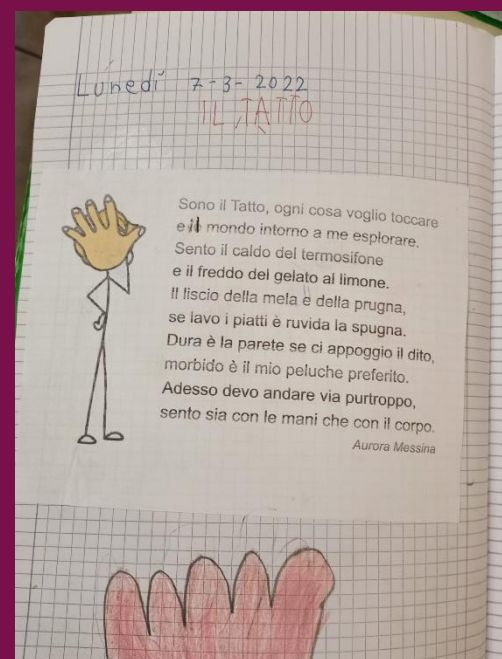 Lunedì 7-3-2022
IL TATTO
Sono il Tatto, ogni cosa voglio toccare
e il mondo intorno a me esplorare.
Sento il caldo del termosifone
e il freddo del gelato al limone.
Il liscio della mela e della prugna,
se lavo i piatti è ruvida la spugna.
Dura è la parete se ci appoggio il dito,
morbido è il mio peluche preferito.
Adesso devo andare via purtroppo,
sento sia con le mani che con il corpo.
Aurora Messina